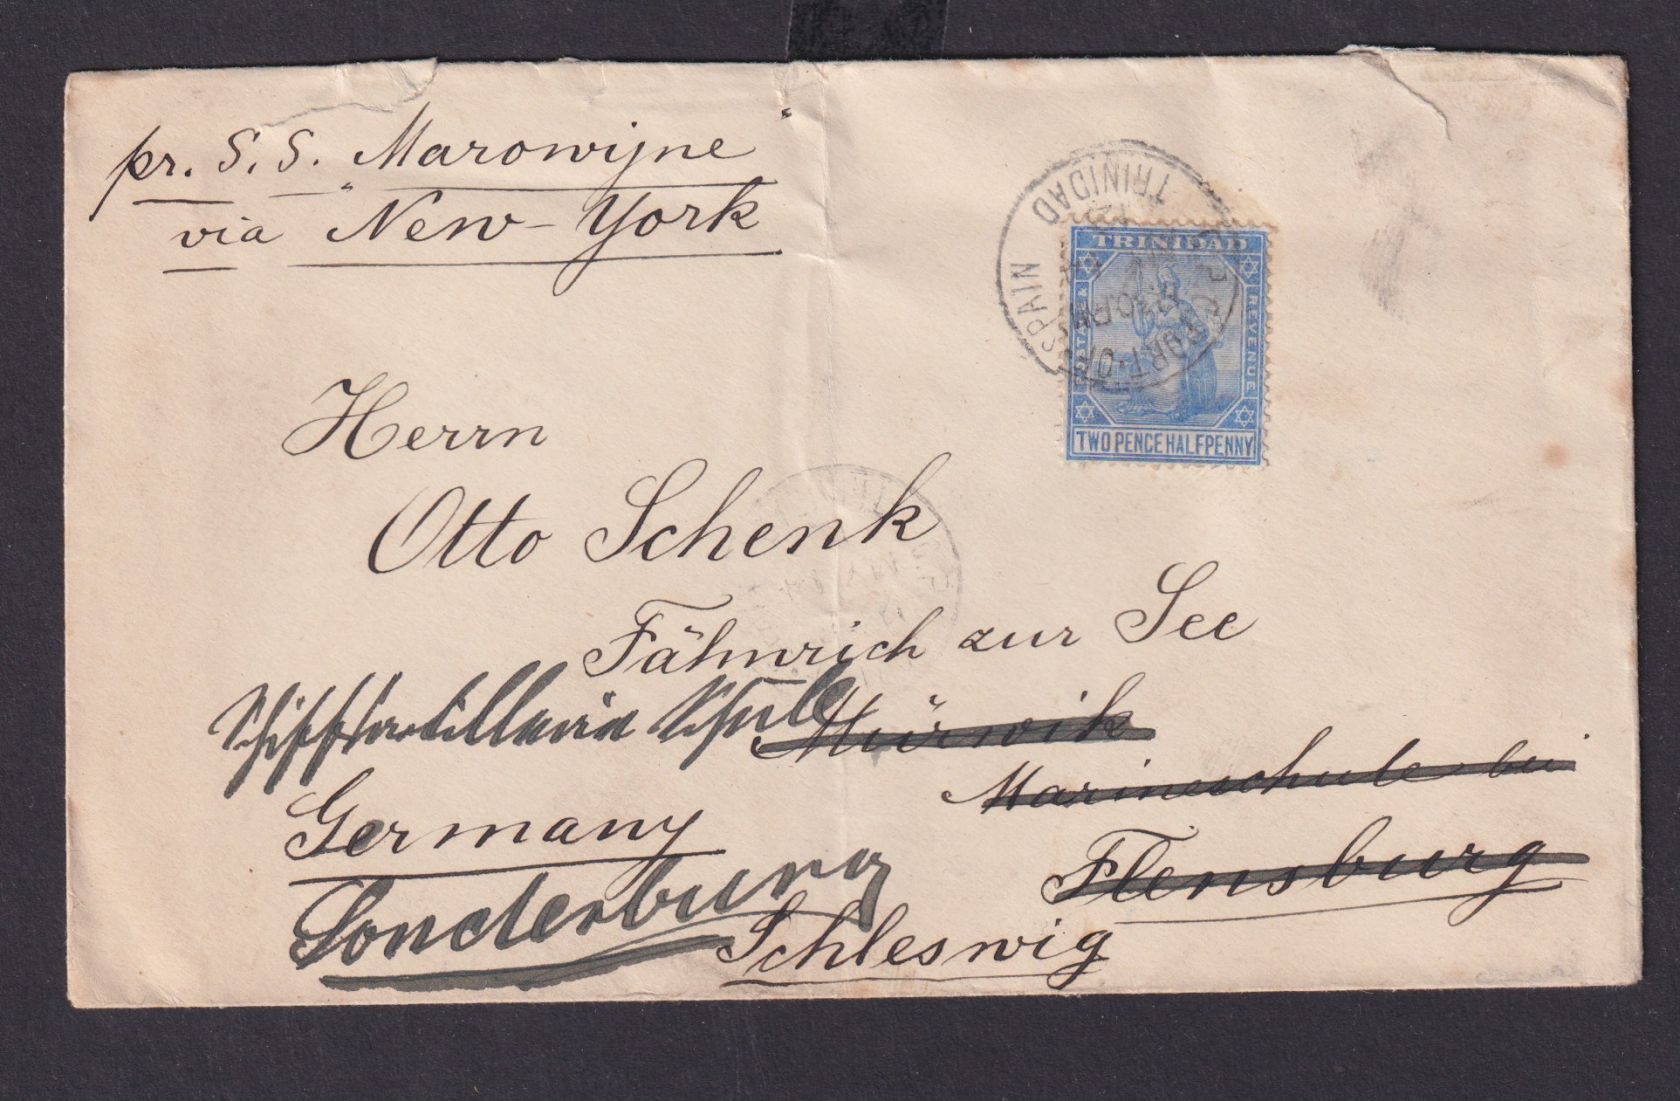 pr. S.S. "Marowijne
via New-York
PORT-OF-SPAIN
TRINIDAD
TRINIDAD
REVENUE
TWO PENCE HALFPENNY
Herrn
Otto Schenk
Fähnrich zur See
Schiffsartillerie Schule
Mürwik
Marineschule bei
Germany
Flensburg
Sonderburg
Schleswig